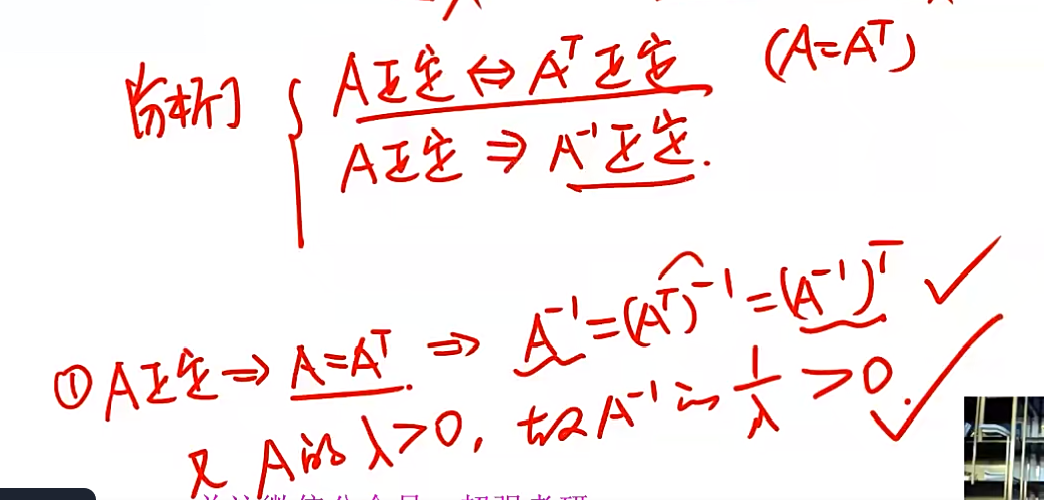 [分析] A正定⇔Aᵀ正定 (A=Aᵀ)
A正定⇒A⁻¹正定.
①A正定⇒A=Aᵀ⇒A⁻¹=(Aᵀ)⁻¹=(A⁻¹)ᵀ ✓
又A的λ>0,故A⁻¹的1/λ>0. ✓